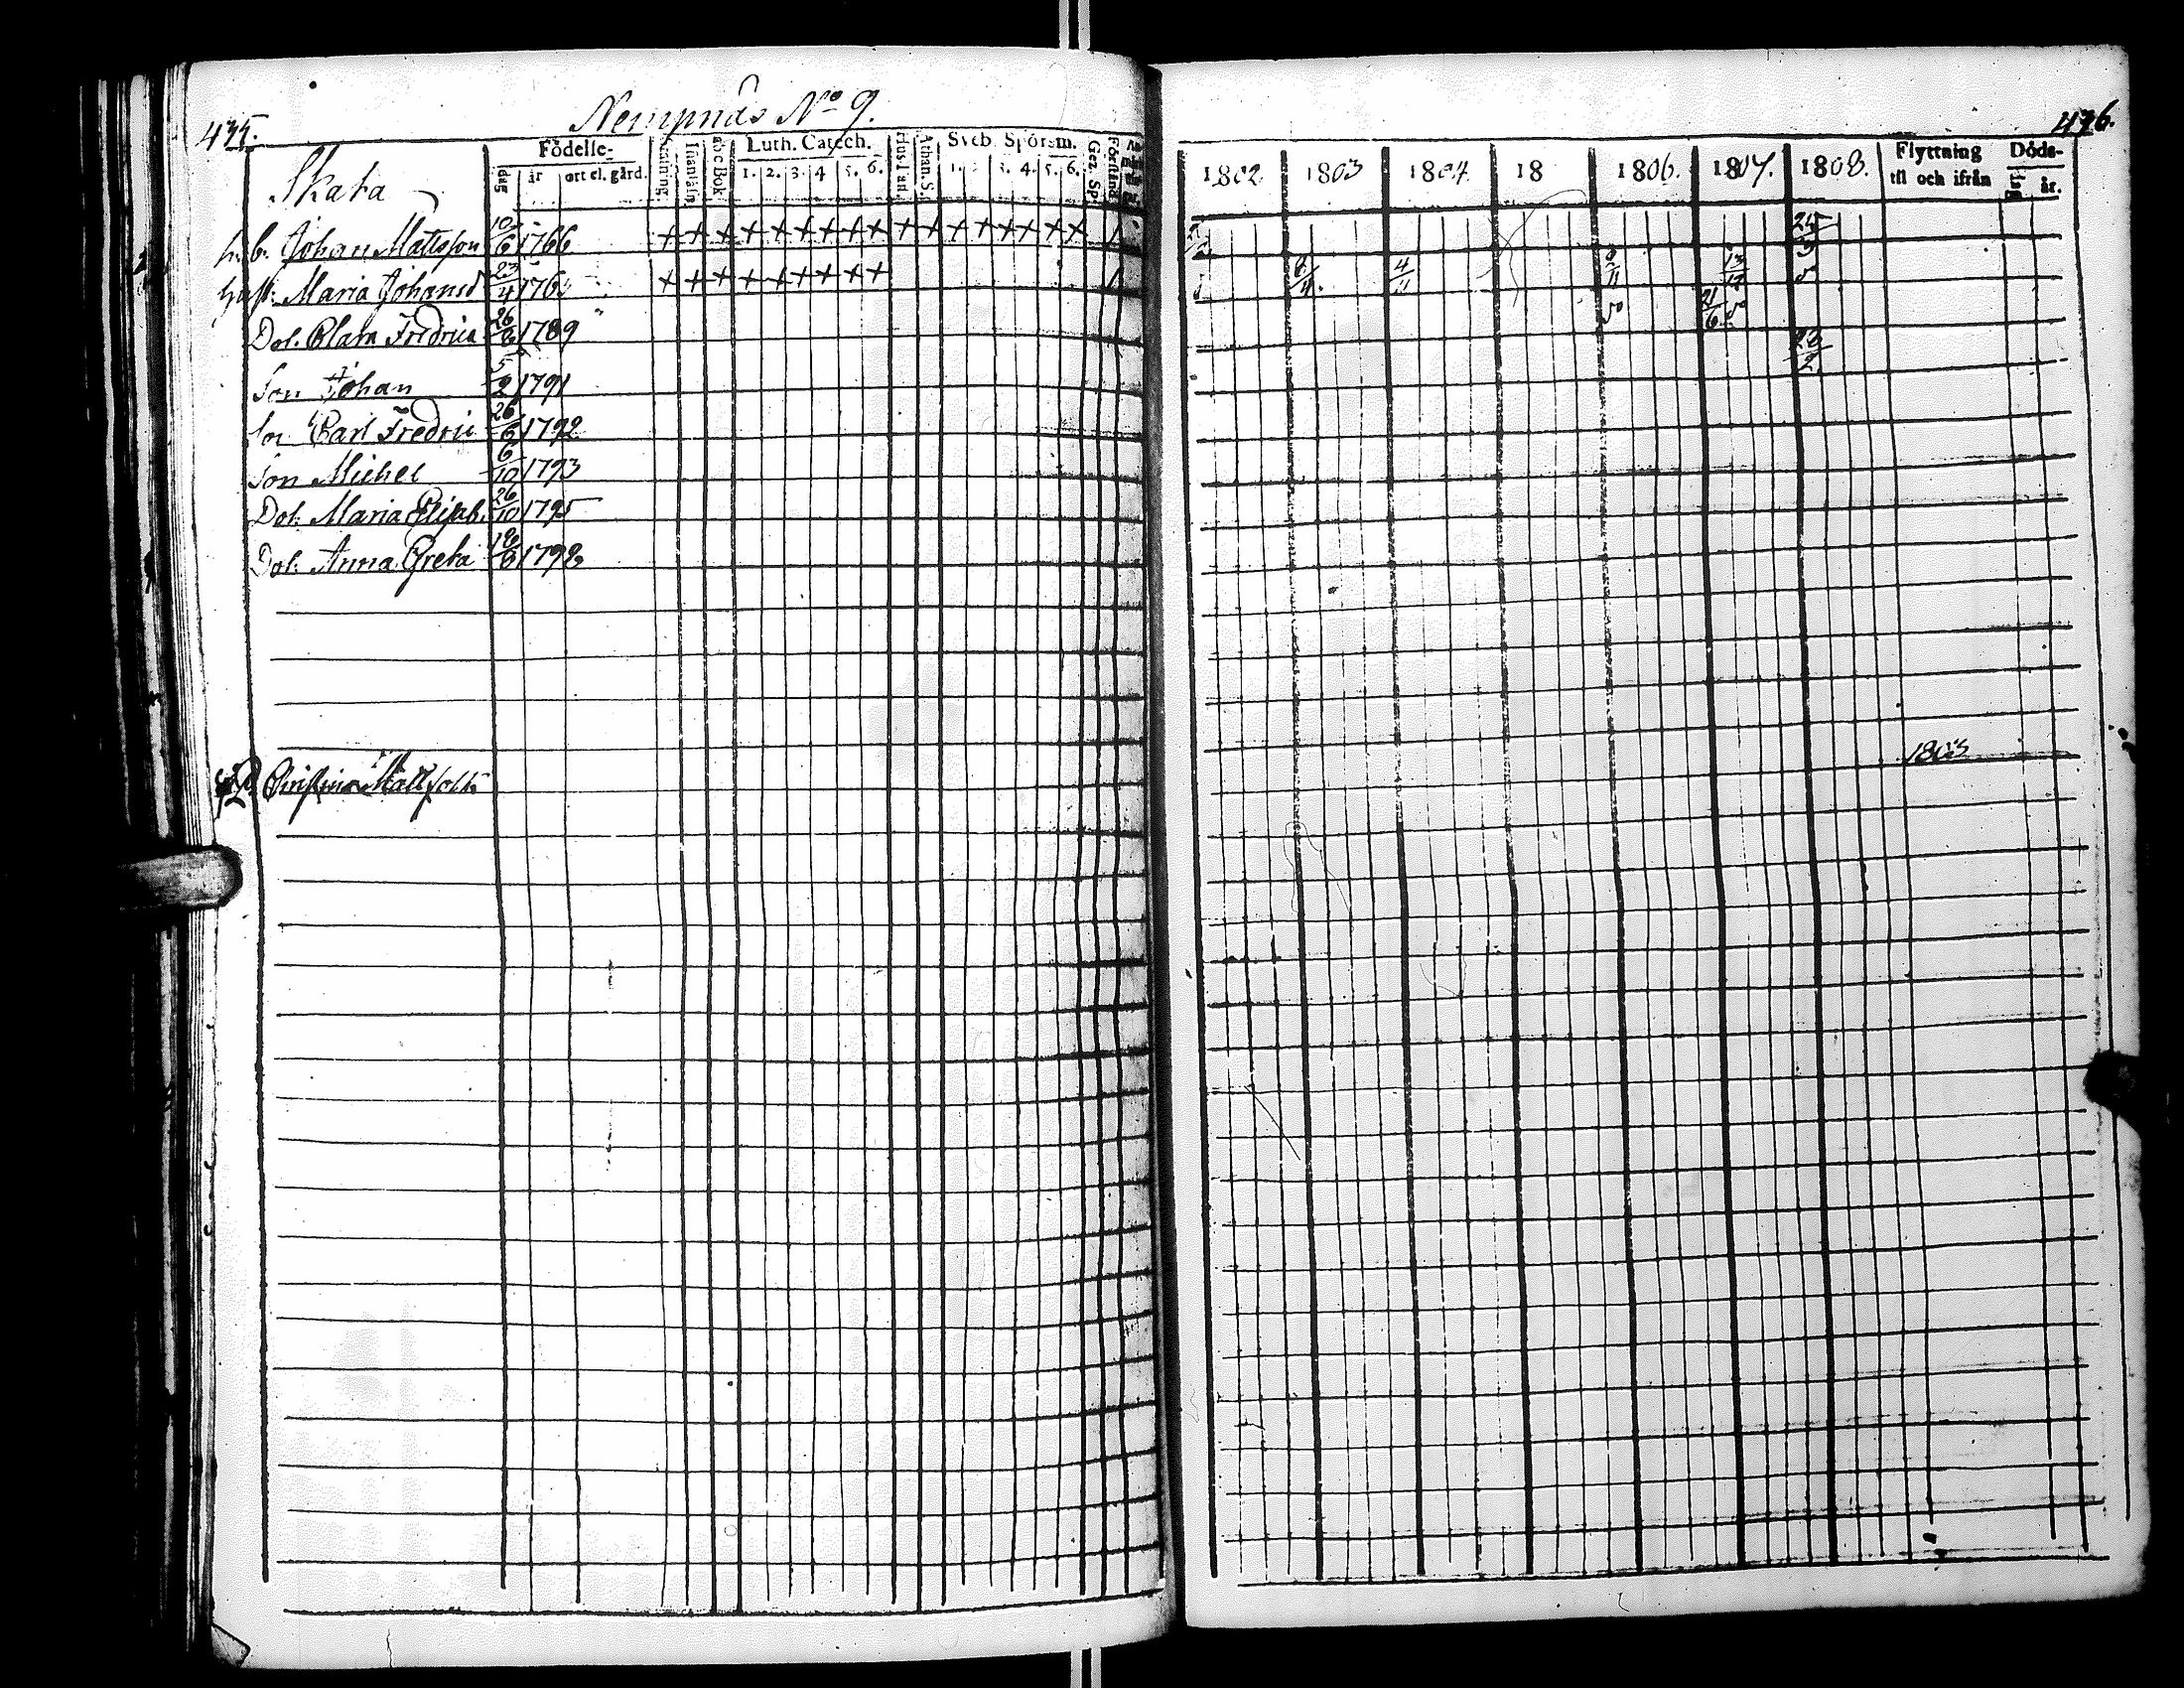 435.
Nempnäs No 9.
Skata
Födelse-
dag år ort el. gård.
Innanläsn
abc Bok
Luth. Catech.
1. 2. 3. 4 5. 6.
Hus-tafl.
Athan. S.
Sveb. Spörsm.
1. 2 3. 4. 5. 6.
Gez. Sp.
Förstånd
h. b. Johan Mattsson 10/6 1766 + + + + + + + + + + + + + + + + + 1
Hust: Maria Johansd 23/4 176 + + + + + + + + + 1
Dot. Clara Fredrica 26/8 1789
Son Johan 5/2 1791
Son Carl Fredric 26/6 1792
Son Michel 6/10 1793
Dot: Maria Elisab. 26/10 1795
Dot: Anna Greta 1798
Christina Matts
476.
1802 1803 1804 18 1806. 1807. 1808. Flyttning til och ifrån Döds- dag år.
25/3
8/4 4/11 8/11 13/12
21/6
28/2
1803